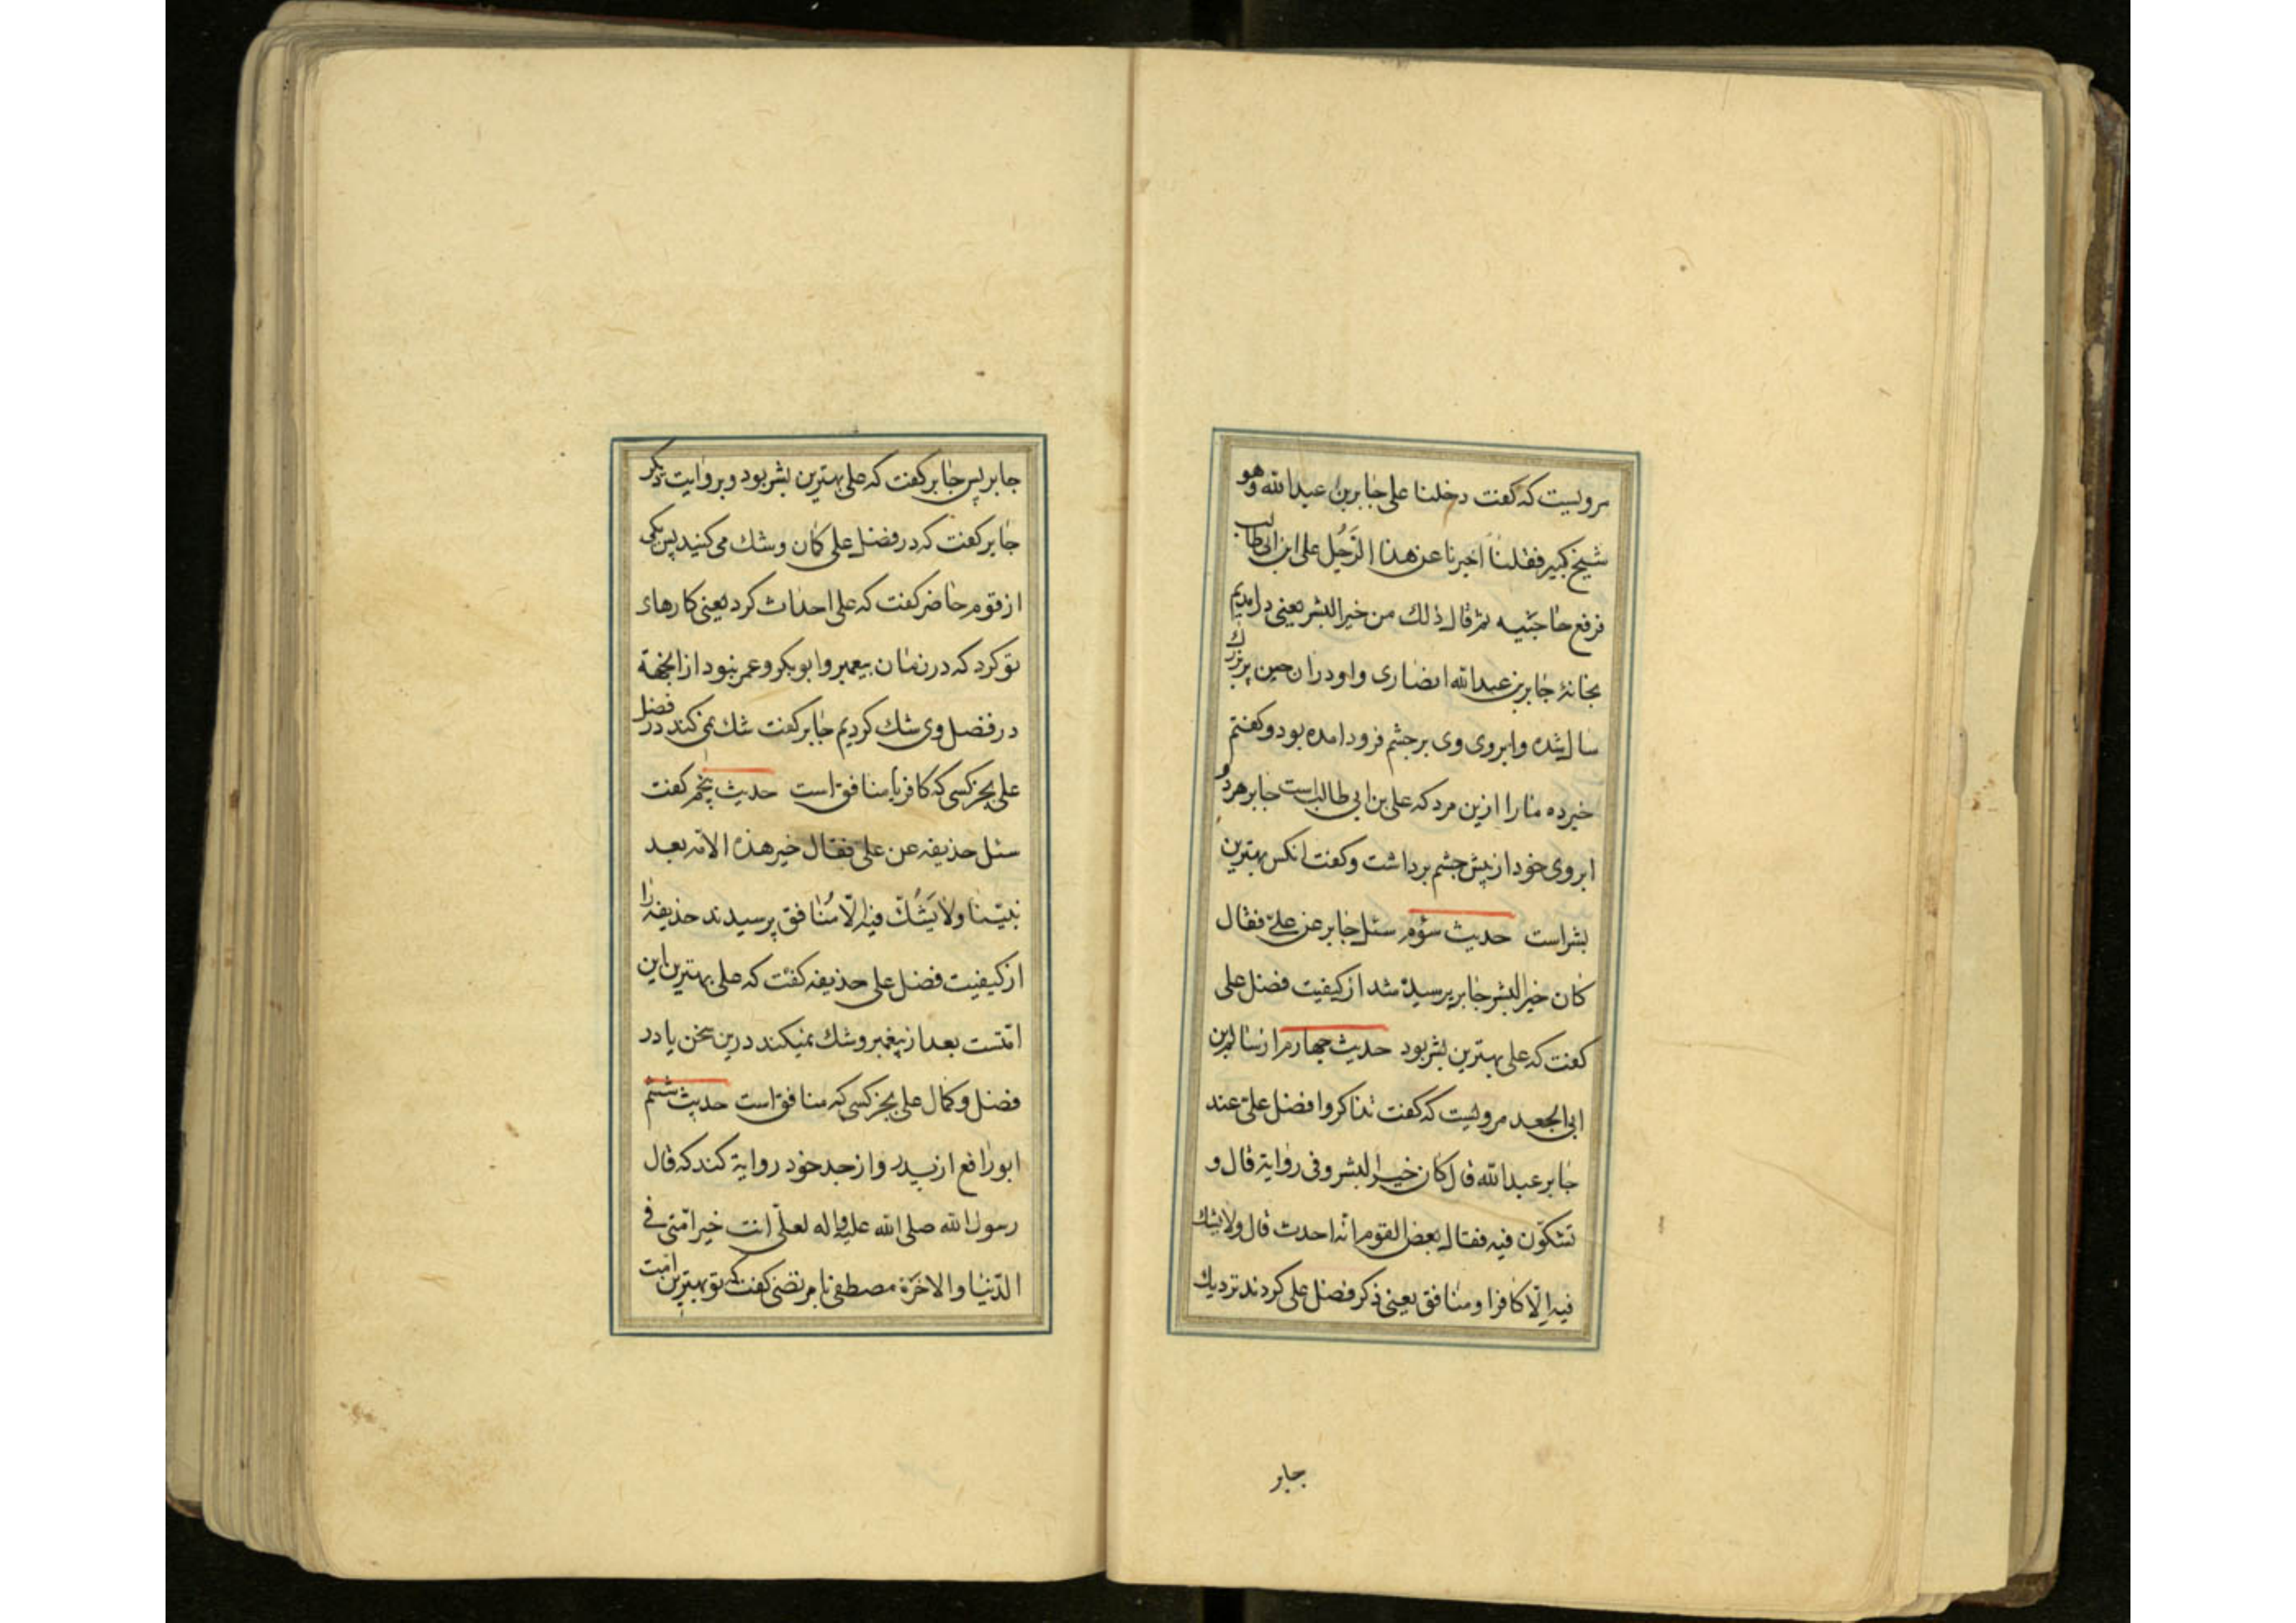 مرویست که گفت دخلنا علی جابر بن عبدالله وهو
شیخ کبیر فقلنا اخبرنا عن هذا الرَّجُل علی ابن ابی طالب
فرفع حاجبیه ثم قال ذلک من خیر البشر یعنی درامدیم
بخانهٔ جابر بن عبدالله انصاری واو در ان حین پیر بزرک
سال شده وابروی وی بر چشم فرود امده بود وکفتم
خبر ده ما را ازین مرد که علی بن ابی طالب است جابر هر دو
ابروی خود از پیش چشم برداشت وکفت انکس بهترین
بشر است حدیث سؤم سئل جابر عن علیّ فقال
کان خیر البشر جابر پرسیده شد از کیفیت فضل علی
کفت که علی بهترین بشر بود حدیث چهارم از سالم بن
ابی الجعد مرویست که کفت تذاکروا فضل علیّ عند
جابر عبدالله قال کان خیر البشر وفی روایة قال و
تشکّون فیه فقال بعض القوم انّه احدث قال ولا یشک
فیه الّا کافرا ومنافق یعنی ذکر فضل علی کردند نزدیک
جابر
جابر پس جابر کفت که علی بهترین بشر بود وبروایت دیکر
جابر کفت که در فضل علی کمان وشک می کنید پس یکی
از قوم حاضر کفت که علی احداث کرد یعنی کارهای
نو کرد که در زمان پیغمبر وابوبکر وعمر نبود از انجهة
در فضل وی شک کردیم جابر کفت شک نمی کند در فضل
علی بجز کسی که کافر یا منافق است حدیث پنجم کفت
سئل حذیفه عن علی فقال خیر هذه الامّه بعد
نبیّنا ولا یَشُکّ فیه الّا مُنافق پرسیدند حذیفه را
از کیفیت فضل علی حذیفه کفت که علی بهترین این
امّتست بعد از پیغمبر وشک نمیکند درین سخن یا در
فضل وکمال علی بجز کسی که منافق است حدیث ششم
ابورافع از پدر واز جد خود روایة کند که قال
رسول الله صلی الله علیه واله لعلّی انت خیر امّتی فی
الدّنیا والاخرَة مصطفی با مرتضی کفت که تو بهترین امّت